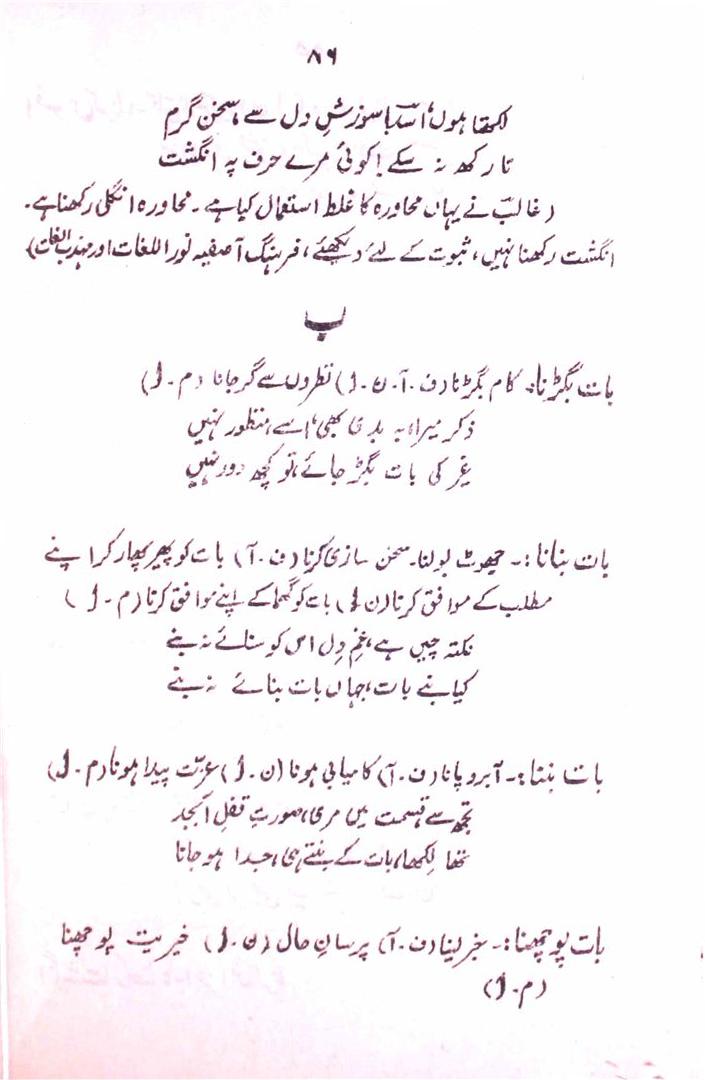 ۸۶
لکھتا ہوں، اسدؔ! سوزشِ دل سے، سخن گرم
تا رکھ نہ سکے! کوئی مرے حرف پہ انگشت
(غالبؔ نے یہاں محاورہ کا غلط استعمال کیا ہے۔ محاورہ انگلی رکھنا ہے۔
انگشت رکھنا نہیں، ثبوت کے لئے دیکھئے، فرہنگ آصفیہ نور اللغات اور مہذب اللغات)
ب
بات بگڑنا:۔ کام بگڑنا (ف۔ آ۔ ن۔ ل) نظروں سے گر جانا (م۔ ل)
ذکر میرا، بہ بدی بھی، اسے، منظور نہیں
غیر کی بات بگڑ جائے، تو کچھ دور نہیں
بات بنانا:۔ جھوٹ بولنا۔ سخن سازی کرنا (ف۔ آ) بات کو پھیر پھار کر اپنے
مطلب کے موافق کرنا (ن ل) بات کو گھما کے اپنے موافق کرنا (م۔ ل)
نکتہ چیں ہے، غمِ دل اس کو سنائے نہ بنے
کیا بنے بات، جہاں بات بنائے نہ بنے
بات بننا:۔ آبرو پانا (ف۔ آ) کامیابی ہونا (ن۔ ل) عزت پیدا ہونا (م۔ ل)
تجھ سے، قسمت میں مری، صورتِ قفلِ ابجد
تھا لکھا، بات کے بنتے ہی، جدا ہو جانا
بات پوچھنا:۔ خبر لینا (ف۔ آ) پرسانِ حال (ن۔ ل) خیریت پوچھنا
(م۔ ل)